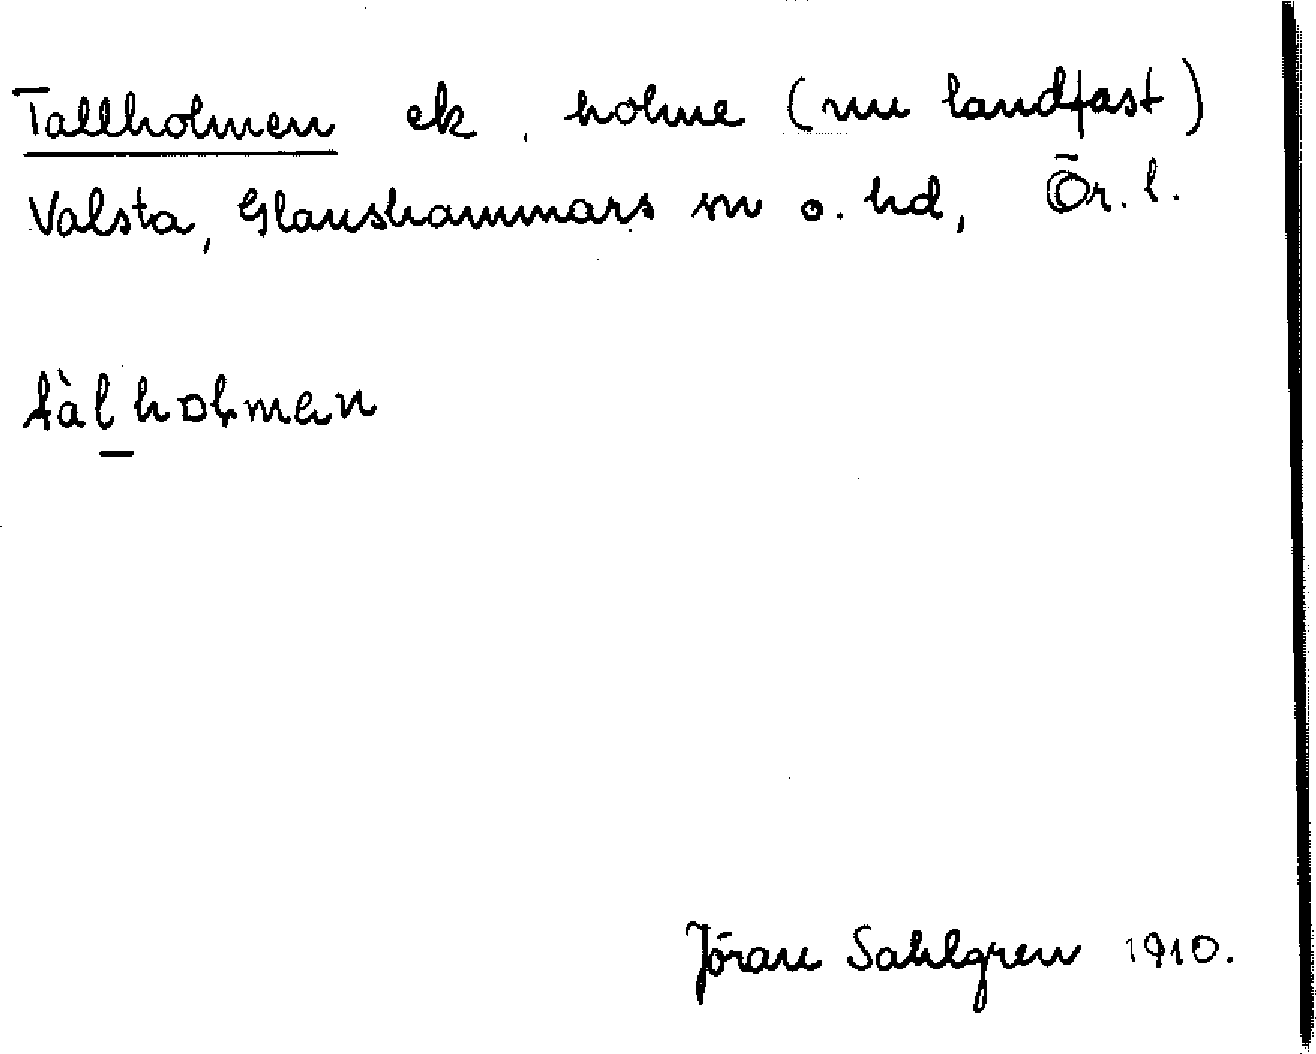 Tallholmen ek. holme (nu landfast)
Valsta, Glanshammars sn o. hd, Ör. l.
tàlhoɫmɘn
Jöran Sahlgren 1910.